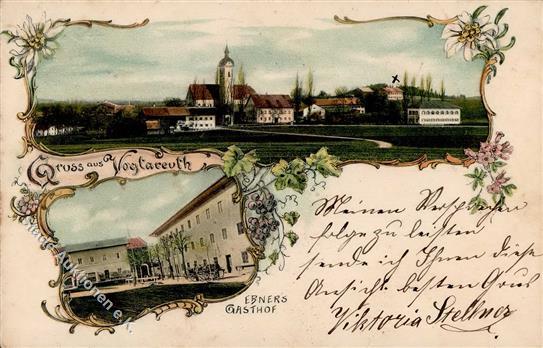 Gruss aus Vogtareuth
EBNERS
GASTHOF
Meinen Versprechen
folge zu leisten
sende ich Ihnen diese
Ansicht. besten Gruß
Viktoria Stellner